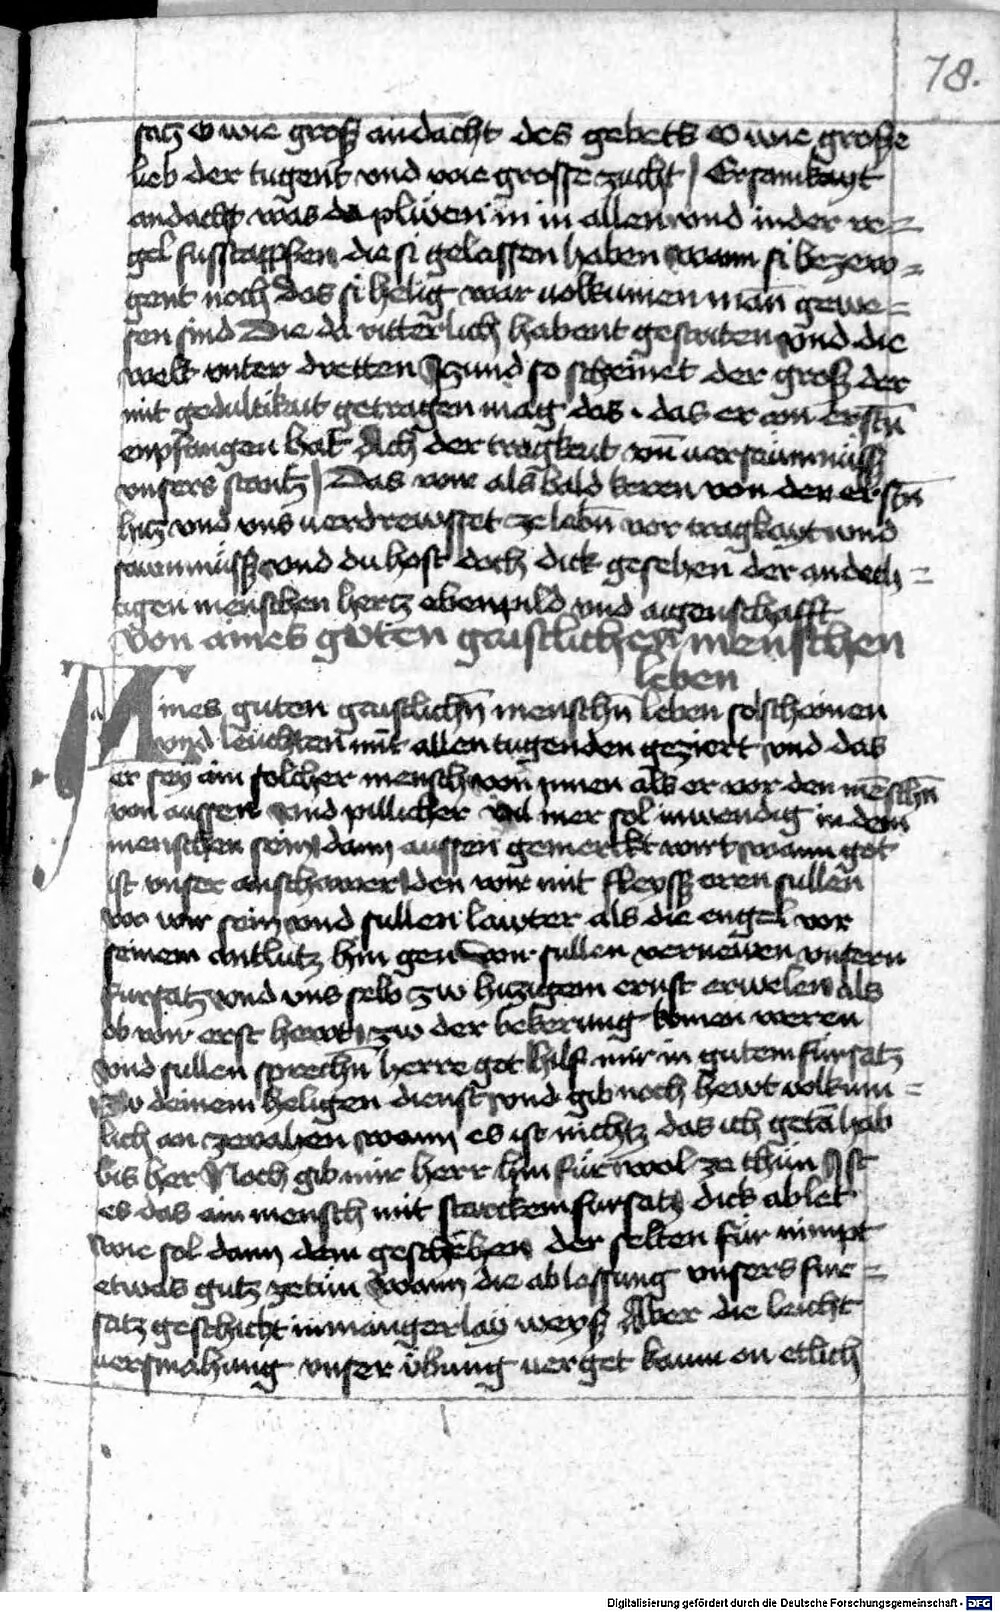 78.
satz O wie groß andacht des gebets O wie große
lieb der tugent vnd wie grosse zucht Ersamkayt
andacht was da plüen in in allen vnd in der re=
gel fusstapffen die si gelassen haben wann si bezew=
gent noch das si helig war uolkumen man gewe=
sen sind Die da ritterlich habent gestriten vnd die
welt vnter dretten Yzund so scheinet der groß der
mit gedultikait getragen mag das . das er am erstn̄
enpfangen hat Ach der tragkeit vn̄ uersaumnüß
vnsers stantz Das wir als bald keren von der erstn̄
hitz vnd vns uerdrewsset ze lebn̄ vor tragkayt vnd
saumnüß vnd du hast doch dick gesehen der andech=
tigen menschen hertz ebenpild vnd aigenschafft
Von aines guten gaistlichen menschen
leben
Aines guten gaistlichn̄ menschn̄ leben sol scheinen
vnd leuchten mit allen tugenden geziert vnd das
er sey ain solcher mensch von ynnen als er vor den mēschn̄
von aussen vnd pillicher vil mer sol inwendig in dem
menschen sein dann aussen gemerckt wirt wann got
ist vnser anschawer den wir mit fleyß eren sullen
wo wir sein vnd sullen lawter als die engel vor
seinem antlutz hin gen Wir sullen vernewen vnsern
fursatz vnd vns selb zw hizigem ernst erwelen als
ob wir erst hewt zw der bekerung komen weren
vnd sullen sprechn̄ herre got hilf mir in gutem fursatz
zw deinem heligen dienst vnd gib noch hewt uolkum=
lich an zevahen wann es ist nichtz das ich getā hab
bis her Noch gib mir herr hin für wol ze thün Ist
es das ain mensch mit starckem fursatz dick ablet
wie sol dann dem geschehen der selten für nimpt
etwas gutz zetun Wann die ablassung vnsers fur=
satz geschicht in mangerlay weyß Aber die leicht
uersmahung vnser übung uerget kaum on etlich